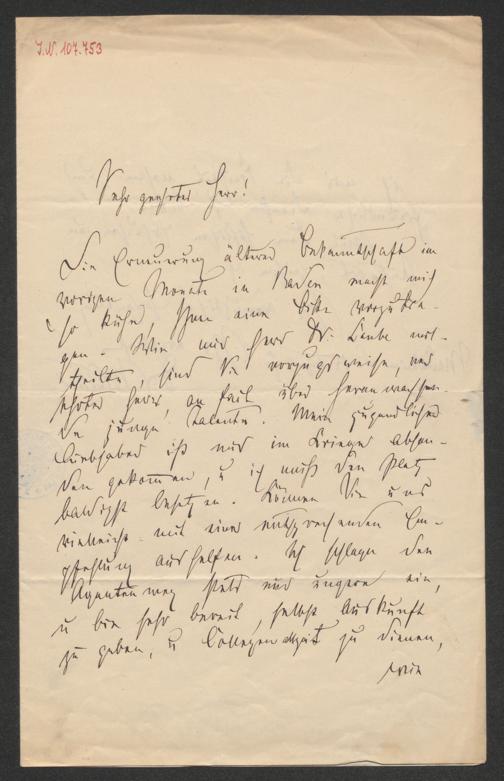 J.N. 107.753
Sehr geehrter Herr!
Die Erneuerung älterer Bekanntschaft im
vorigen Monate in Baden macht mich
so kühn, Ihnen eine Bitte vorzutra-
gen. Wie mir Herr Dr. Laube mit-
theilte, sind Sie vorzugsweise, ver-
ehrter Herr, au fait über heranwachsen-
de junge Talente. Mein jugendlicher
Liebhaber ist mir im Kriege abhan-
den gekommen, u ich muß den Platz
baldigst besetzen. Können Sie uns
vielleicht mit einer entsprechenden Em-
pfehlung aushelfen. Ich schlage den
Agentenweg stets nur ungern ein,
u bin sehr bereit, selbst Auskunft
zu geben, u zu dienen,
wie